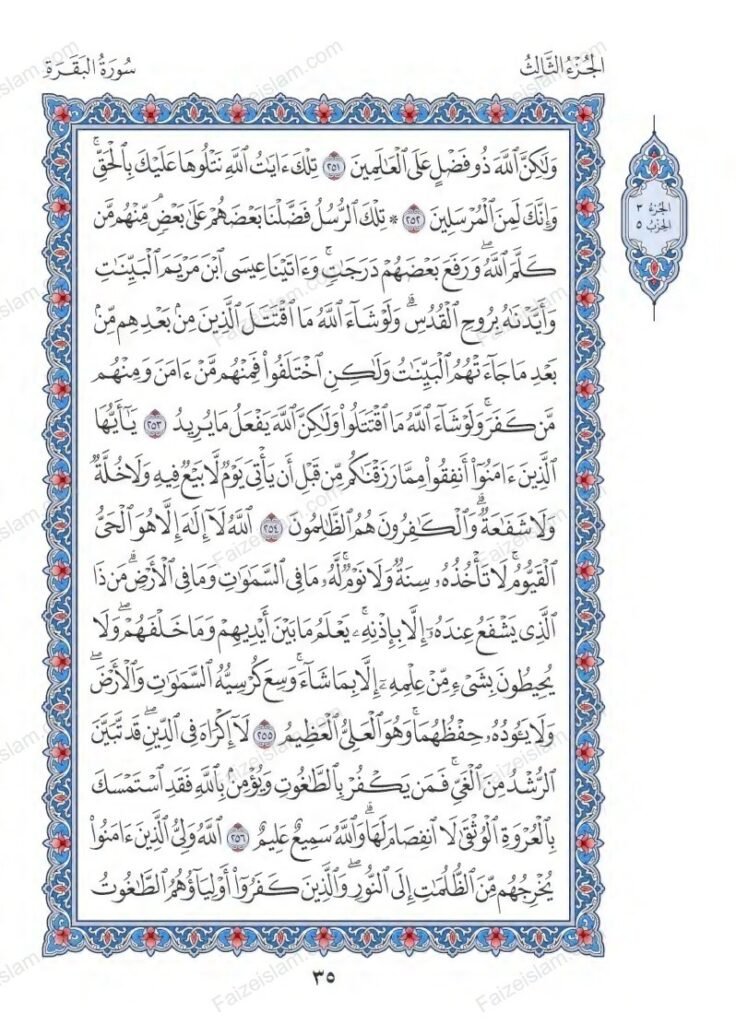 الجُزْءُ الثَّالِثُ
سُورَةُ البَقَرَةِ
وَلَٰكِنَّ اللَّهَ ذُو فَضْلٍ عَلَى الْعَالَمِينَ ٢٥١ تِلْكَ ءَايَٰتُ اللَّهِ نَتْلُوهَا عَلَيْكَ بِالْحَقِّ ۚ
وَإِنَّكَ لَمِنَ الْمُرْسَلِينَ ٢٥٢ * تِلْكَ الرُّسُلُ فَضَّلْنَا بَعْضَهُمْ عَلَىٰ بَعْضٍ مِّنْهُم مَّن
كَلَّمَ اللَّهُ ۖ وَرَفَعَ بَعْضَهُمْ دَرَجَٰتٍ ۚ وَءَاتَيْنَا عِيسَى ابْنَ مَرْيَمَ الْبَيِّنَٰتِ
وَأَيَّدْنَٰهُ بِرُوحِ الْقُدُسِ ۗ وَلَوْ شَآءَ اللَّهُ مَا اقْتَتَلَ الَّذِينَ مِنۢ بَعْدِهِم مِّنۢ
بَعْدِ مَا جَآءَتْهُمُ الْبَيِّنَٰتُ وَلَٰكِنِ اخْتَلَفُوا۟ فَمِنْهُم مَّنْ ءَامَنَ وَمِنْهُم
مَّن كَفَرَ ۚ وَلَوْ شَآءَ اللَّهُ مَا اقْتَتَلُوا۟ وَلَٰكِنَّ اللَّهَ يَفْعَلُ مَا يُرِيدُ ٢٥٣ يَٰٓأَيُّهَا
الَّذِينَ ءَامَنُوٓا۟ أَنفِقُوا۟ مِمَّا رَزَقْنَٰكُم مِّن قَبْلِ أَن يَأْتِىَ يَوْمٌ لَّا بَيْعٌ فِيهِ وَلَا خُلَّةٌ
وَلَا شَفَٰعَةٌ ۗ وَالْكَٰفِرُونَ هُمُ الظَّٰلِمُونَ ٢٥٤ اللَّهُ لَآ إِلَٰهَ إِلَّا هُوَ الْحَىُّ
الْقَيُّومُ ۚ لَا تَأْخُذُهُۥ سِنَةٌ وَلَا نَوْمٌ ۚ لَّهُۥ مَا فِى السَّمَٰوَٰتِ وَمَا فِى الْأَرْضِ ۗ مَن ذَا
الَّذِى يَشْفَعُ عِندَهُۥٓ إِلَّا بِإِذْنِهِۦ ۚ يَعْلَمُ مَا بَيْنَ أَيْدِيهِمْ وَمَا خَلْفَهُمْ ۖ وَلَا
يُحِيطُونَ بِشَىْءٍ مِّنْ عِلْمِهِۦٓ إِلَّا بِمَا شَآءَ ۚ وَسِعَ كُرْسِيُّهُ السَّمَٰوَٰتِ وَالْأَرْضَ ۖ
وَلَا يَـُٔودُهُۥ حِفْظُهُمَا ۚ وَهُوَ الْعَلِىُّ الْعَظِيمُ ٢٥٥ لَآ إِكْرَاهَ فِى الدِّينِ ۖ قَد تَّبَيَّنَ
الرُّشْدُ مِنَ الْغَىِّ ۚ فَمَن يَكْفُرْ بِالطَّٰغُوتِ وَيُؤْمِنۢ بِاللَّهِ فَقَدِ اسْتَمْسَكَ
بِالْعُرْوَةِ الْوُثْقَىٰ لَا انفِصَامَ لَهَا ۗ وَاللَّهُ سَمِيعٌ عَلِيمٌ ٢٥٦ اللَّهُ وَلِىُّ الَّذِينَ ءَامَنُوا۟
يُخْرِجُهُم مِّنَ الظُّلُمَٰتِ إِلَى النُّورِ ۖ وَالَّذِينَ كَفَرُوٓا۟ أَوْلِيَآؤُهُمُ الطَّٰغُوتُ
الجُزْءُ ٣
الحِزْبُ ٥
٣٥
Faizeislam.com